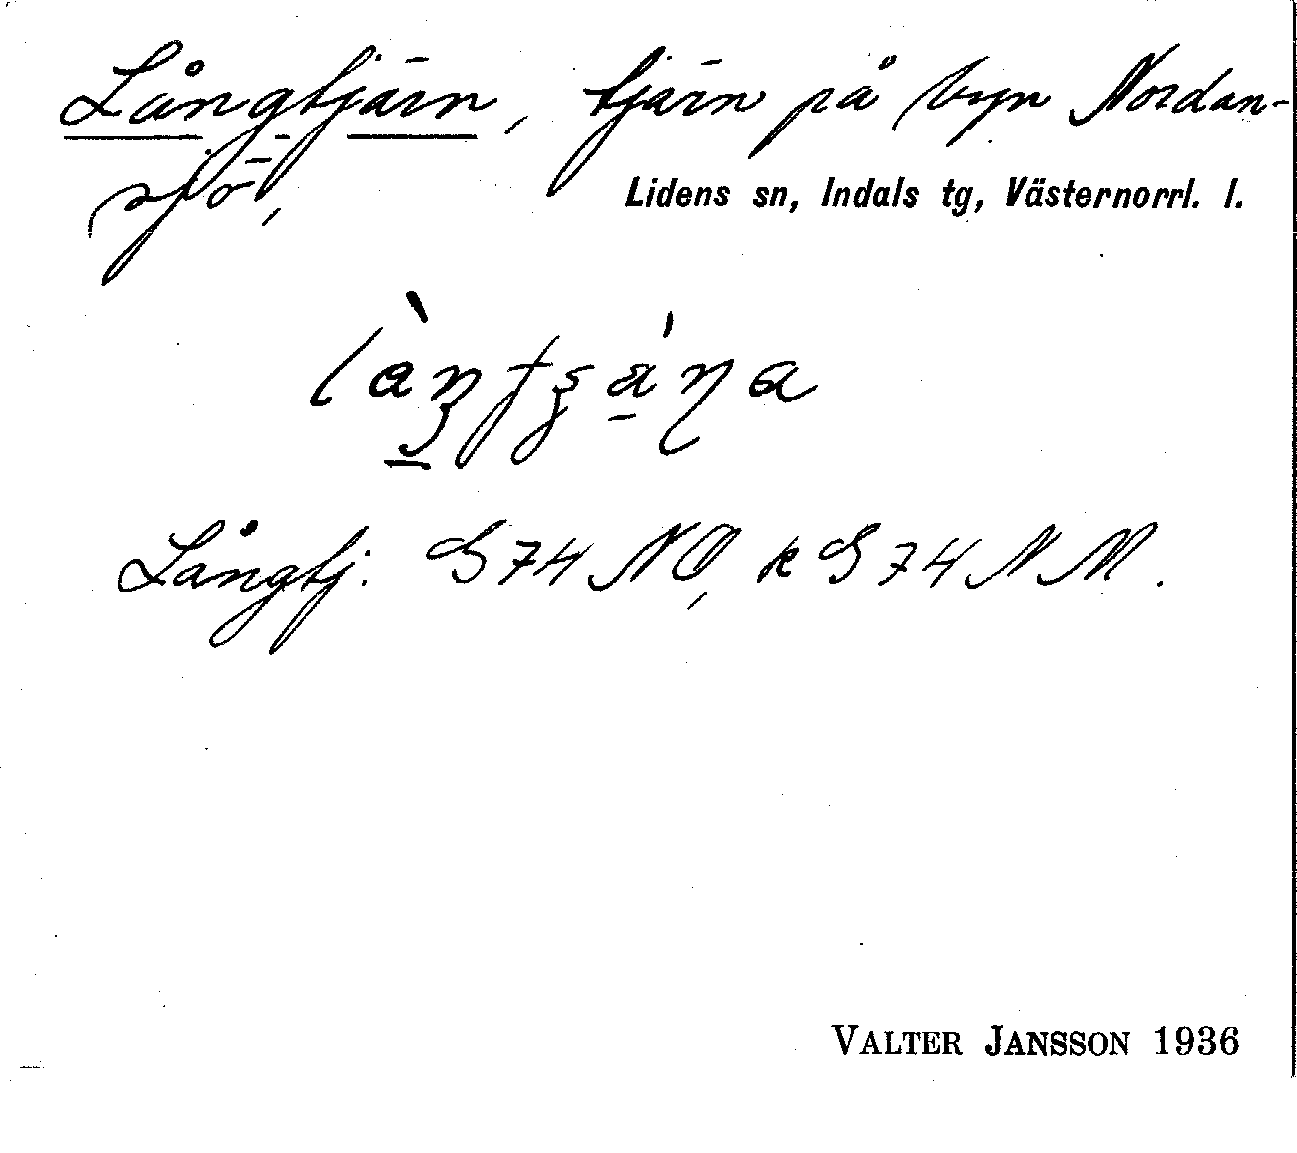 Långtjärn, tjärn på byn Nordan-
sjö,
Lidens sn, Indals tg, Västernorrl. l.
Långtj. S 74 NO, k S 74 N M.
VALTER JANSSON 1936